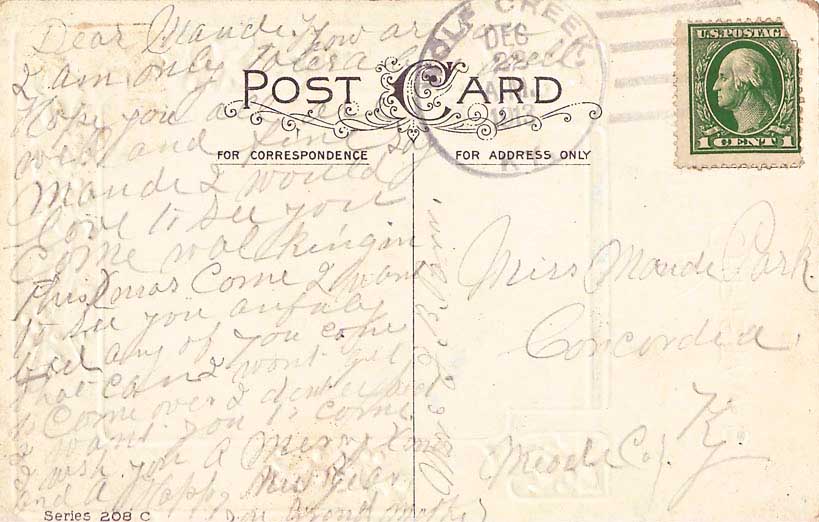 Dear Maude. How are you
I am only tolerable well
Hope you are
well and fine say
Maude I would
love to see you
Come walking in
this Xmas Come I want
to see you awfuly
bad any of you come
that can I wont get
to Come over I dont expect
I want you to come
I wish you a Merry Xmas
and a Happy New Year
Grand mother
POST CARD
FOR CORRESPONDENCE
FOR ADDRESS ONLY
WOLF CREEK
DEC
22
KY.
U.S. POSTAGE
1 CENT 1
Miss Maude Park
Concordia
Meade Co.
Ky
Series 208 C